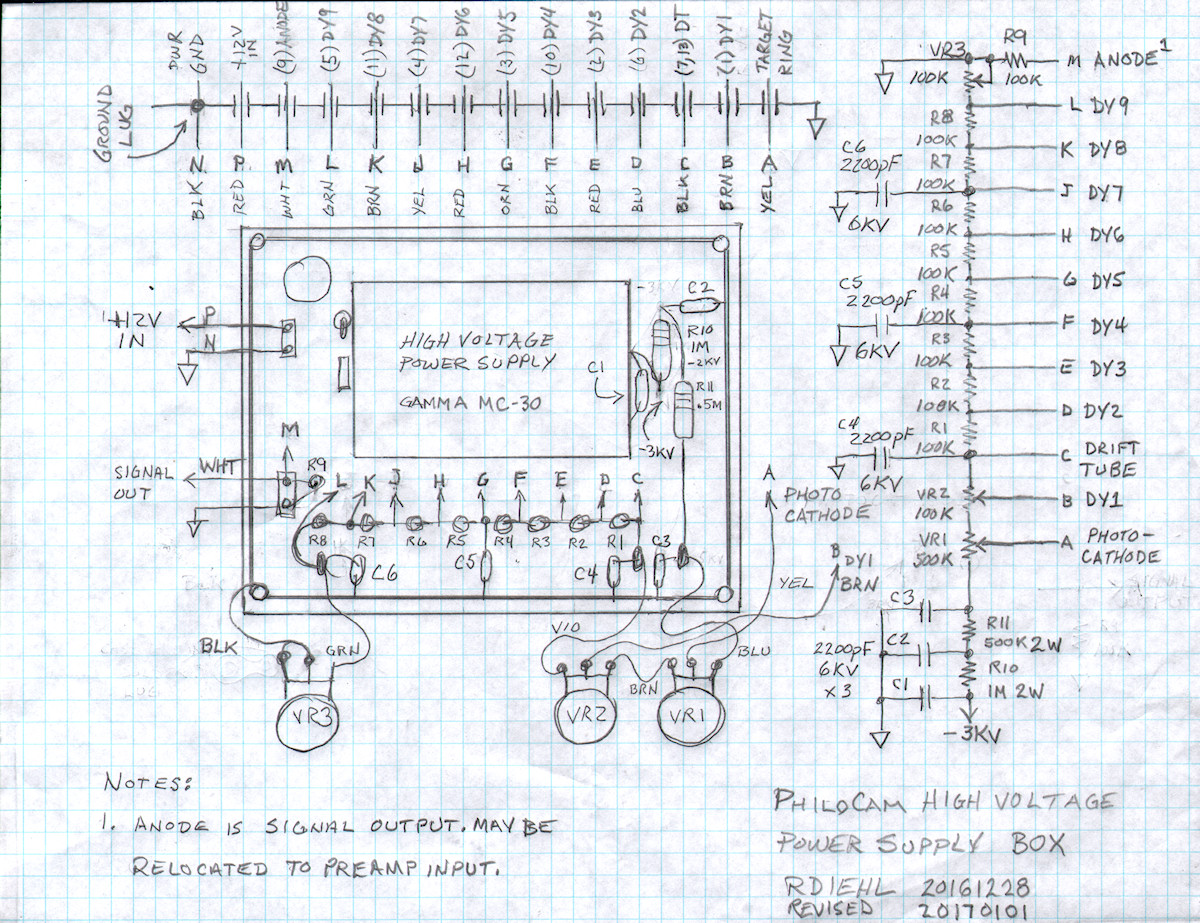 PWR GND
+12V IN
(9) ANODE
(5) DY9
(11) DY8
(4) DY7
(12) DY6
(3) DY5
(10) DY4
(2) DY3
(6) DY2
(7,13) DT
(1) DY1
TARGET RING
GROUND LUG
N P M L K J H G F E D C B A
BLK
RED
WHT
GRN
BRN
YEL
RED
ORN
BLK
RED
BLU
BLK
BRN
YEL
+12V
IN
P
N
HIGH VOLTAGE
POWER SUPPLY
GAMMA MC-30
-3KV
C2
R10
1M
-2KV
C1
R11
.5M
-3KV
M
SIGNAL
OUT
WHT
R9
L K J H G F E D C
R8 R7 R6 R5 R4 R3 R2 R1
C6
C5
C4
C3
A
PHOTO
CATHODE
B
DY1
BRN
YEL
BLK
GRN
VIO
BRN
BLU
VR3
VR2
VR1
VR3
100K
R9
100K
M ANODE 1
L DY9
R8
100K
K DY8
R7
100K
J DY7
C6
2200pF
6KV
R6
100K
H DY6
R5
100K
G DY5
R4
100K
F DY4
C5
2200pF
6KV
R3
100K
E DY3
R2
100K
D DY2
R1
100K
C DRIFT
TUBE
C4
2200pF
6KV
VR2
100K
B DY1
VR1
500K
A PHOTO-
CATHODE
C3
C2
C1
2200pF
6KV
x 3
R11
500K 2W
R10
1M 2W
-3KV
NOTES:
1. ANODE IS SIGNAL OUTPUT. MAY BE
RELOCATED TO PREAMP INPUT.
PHILOCAM HIGH VOLTAGE
POWER SUPPLY BOX
RDIEHL 20161228
REVISED 20170101